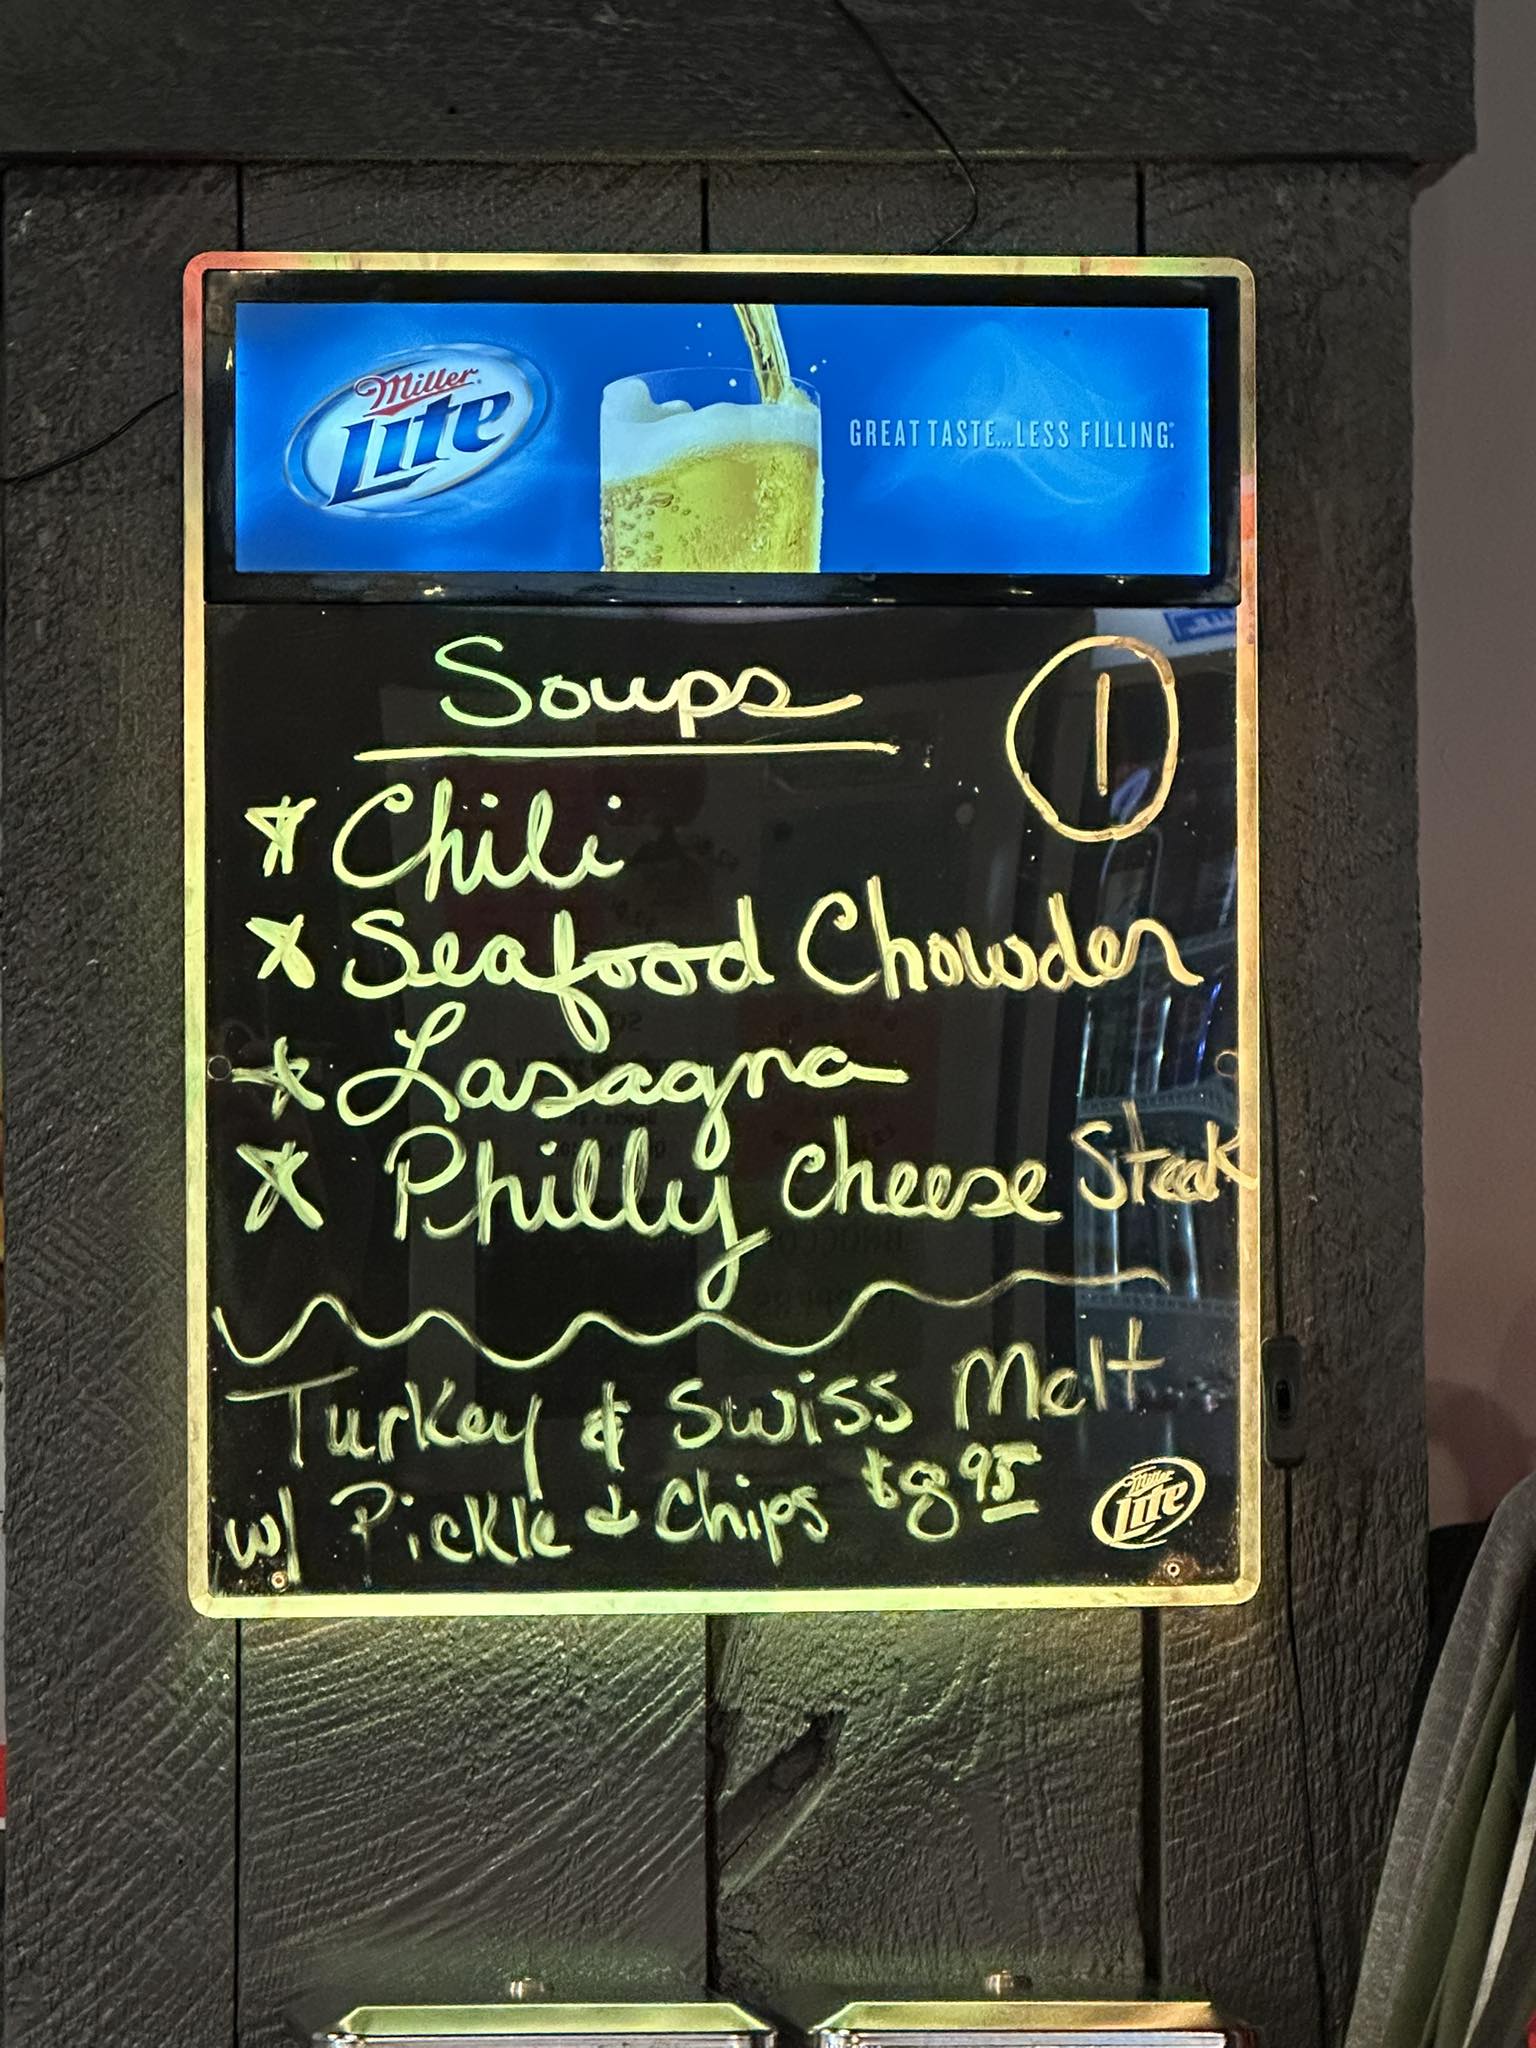 Miller
Lite
GREAT TASTE...LESS FILLING.
Soups
1
* Chili
* Seafood Chowder
* Lasagna
* Philly Cheese Steak
Turkey & Swiss Melt
w/ Pickle & Chips $8.95
Miller
Lite